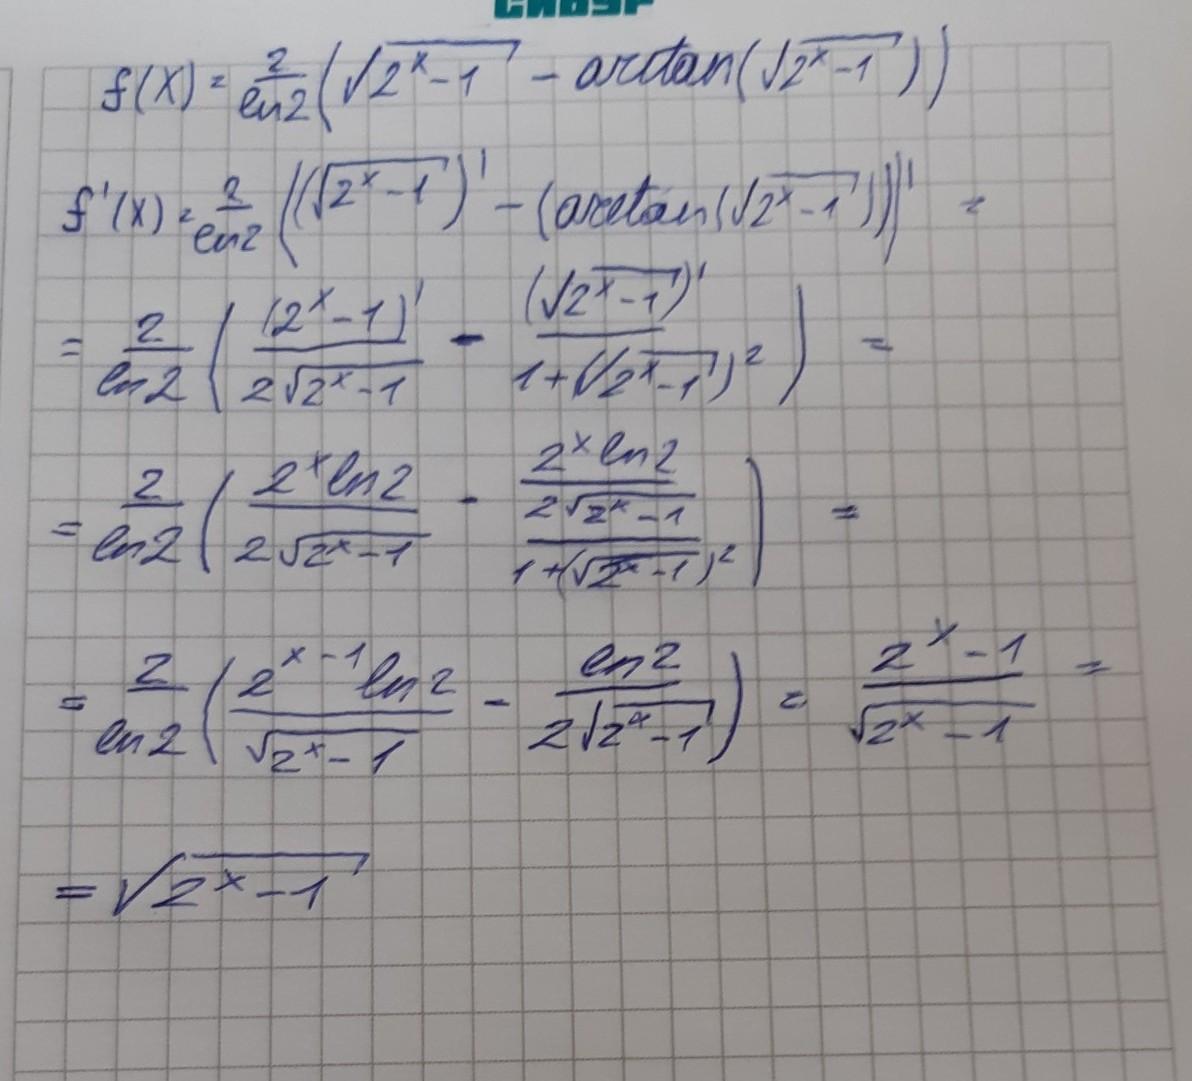 СИБУР
f(x) = \frac{2}{ln2}(\sqrt{2^x-1} - arctan(\sqrt{2^x-1}))
f'(x) = \frac{2}{ln2}((\sqrt{2^x-1})' - (arctan(\sqrt{2^x-1}))' =
= \frac{2}{ln2}(\frac{(2^x-1)'}{2\sqrt{2^x-1}} - \frac{(\sqrt{2^x-1})'}{1+(\sqrt{2^x-1})^2}) =
= \frac{2}{ln2}(\frac{2^x ln2}{2\sqrt{2^x-1}} - \frac{\frac{2^x ln2}{2\sqrt{2^x-1}}}{1+(\sqrt{2^x-1})^2}) =
= \frac{2}{ln2}(\frac{2^{x-1} ln2}{\sqrt{2^x-1}} - \frac{ln2}{2\sqrt{2^x-1}}) = \frac{2^x-1}{\sqrt{2^x-1}} =
= \sqrt{2^x-1}